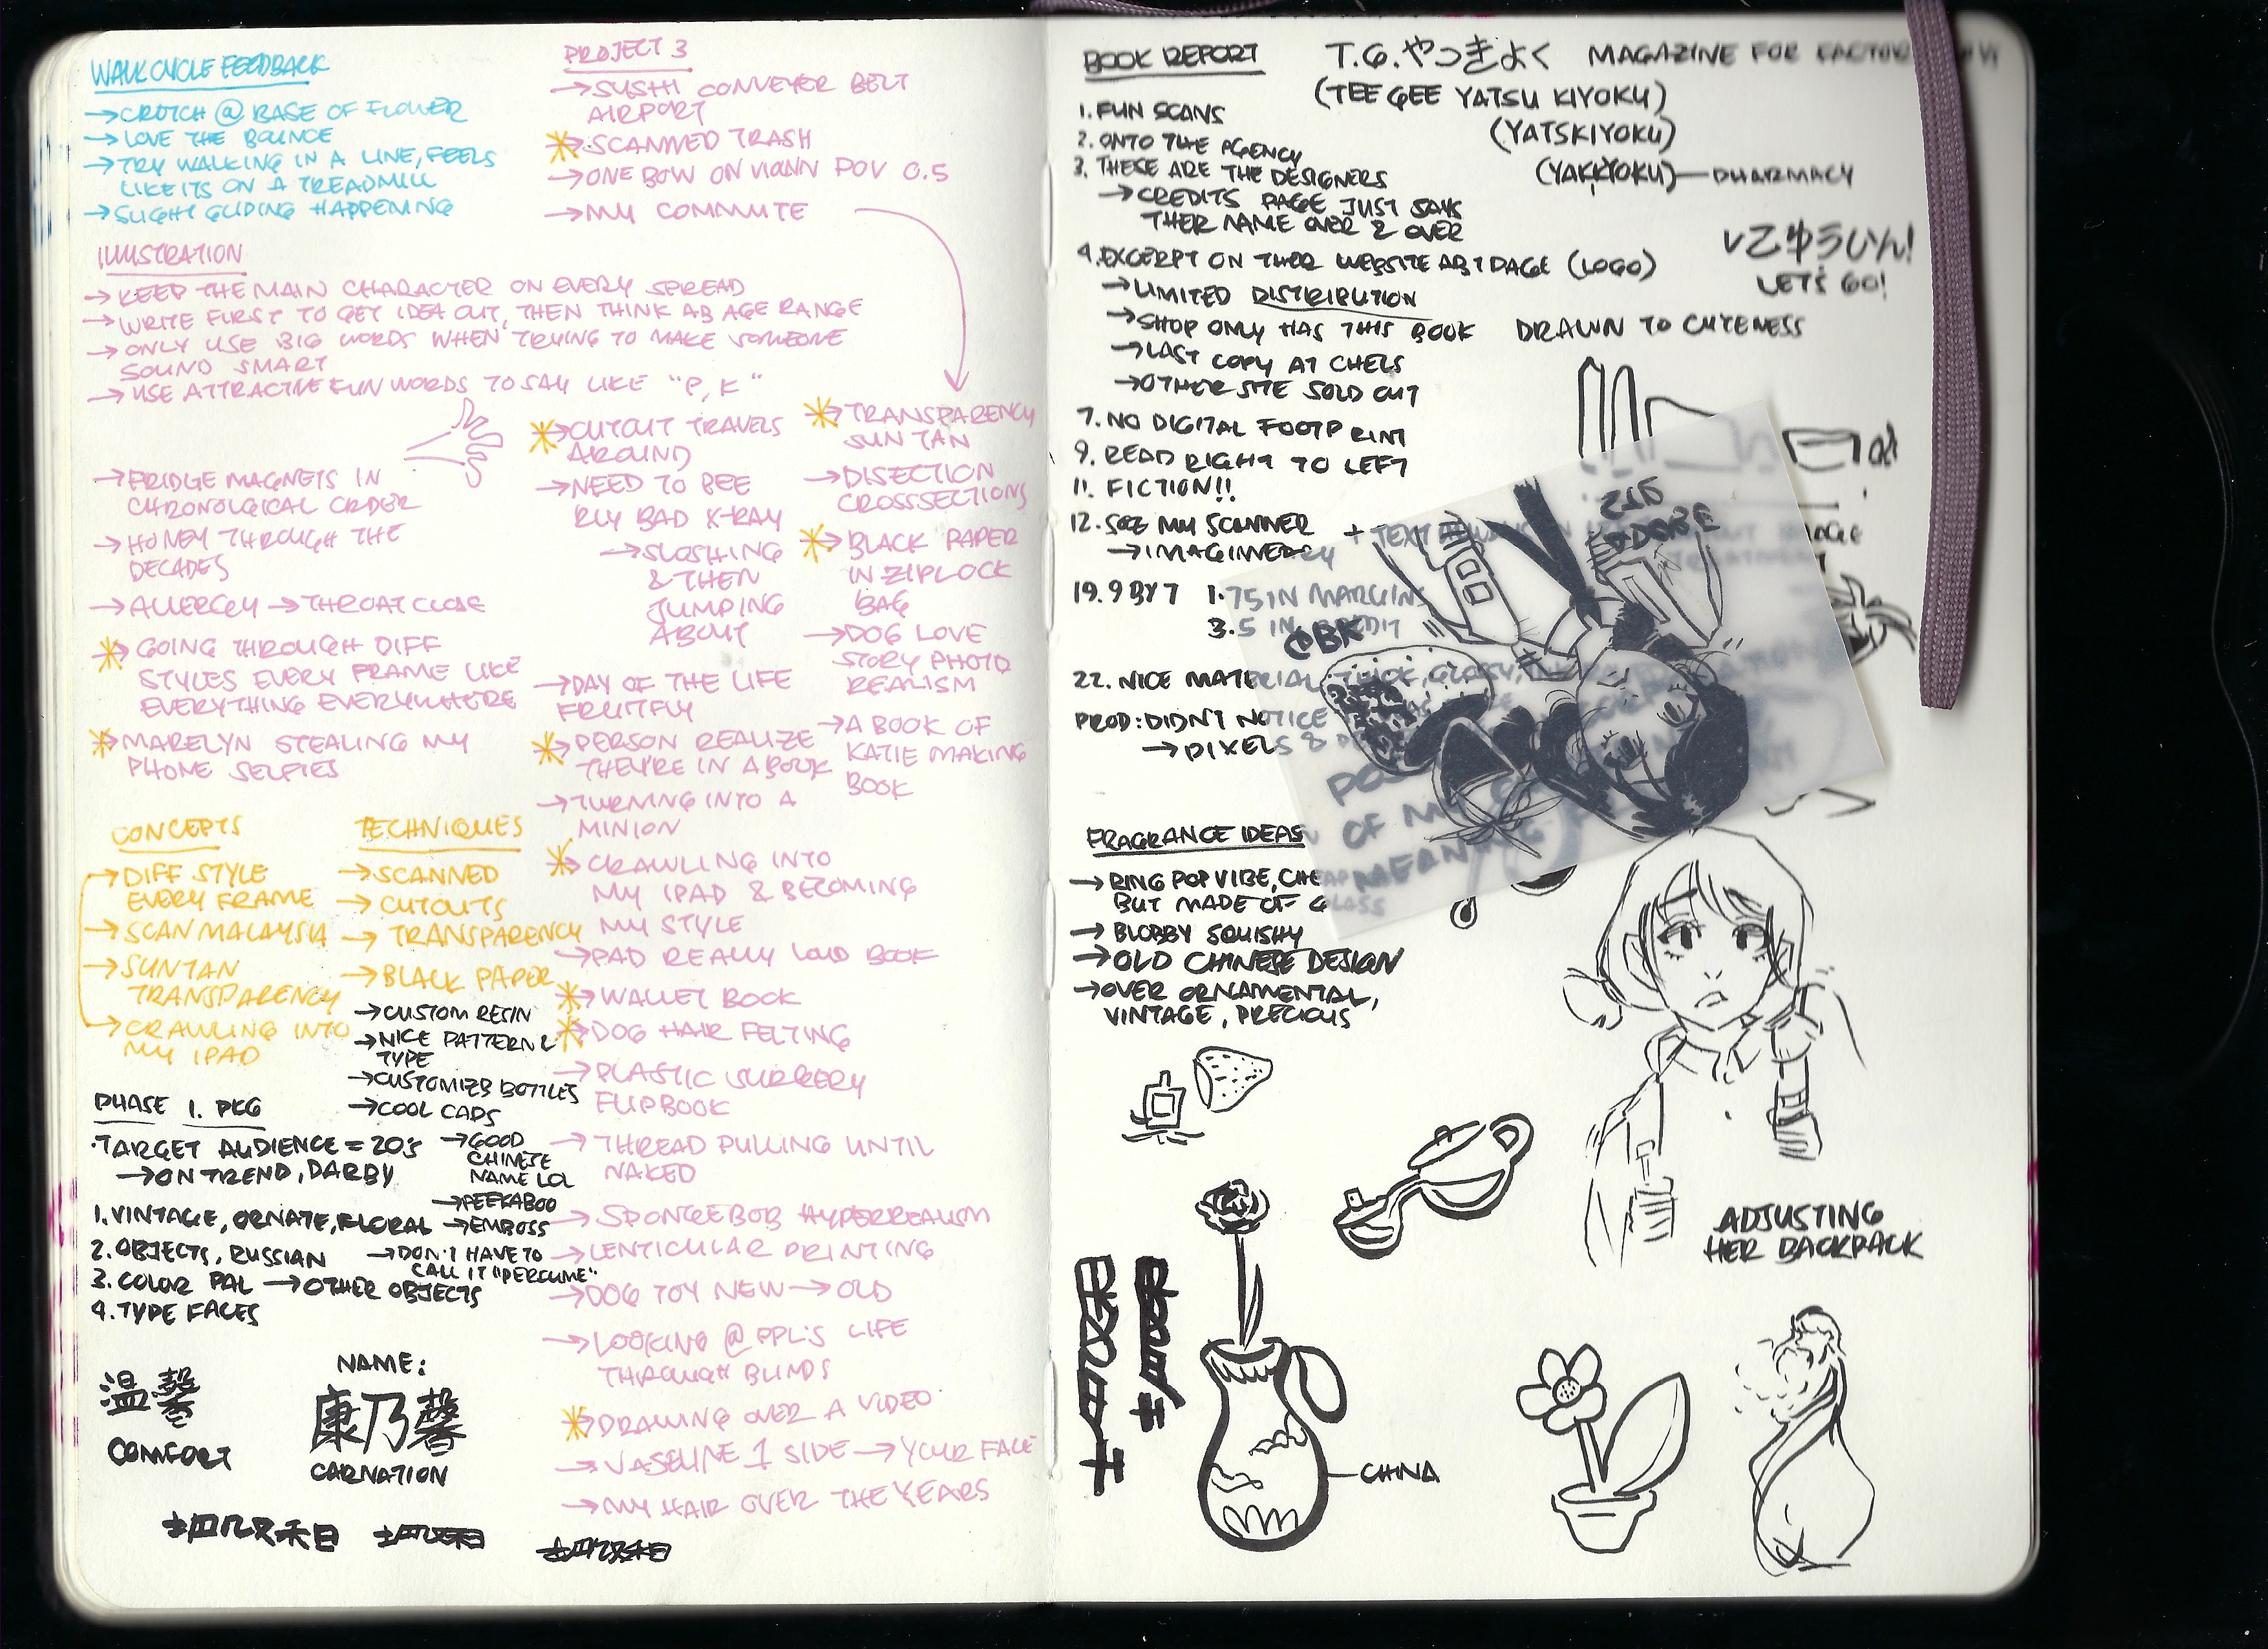 WALK CYCLE FEEDBACK
→ CROTCH @ BASE OF FLOWER
→ LOVE THE BOUNCE
→ TRY WALKING IN A LINE, FEELS
LIKE ITS ON A TREADMILL
→ SLIGHT GLIDING HAPPENING
ILLUSTRATION
→ KEEP THE MAIN CHARACTER ON EVERY SPREAD
→ WRITE FIRST TO GET IDEA OUT, THEN THINK AB AGE RANGE
→ ONLY USE BIG WORDS WHEN TRYING TO MAKE SOMEONE
SOUND SMART
→ USE ATTRACTIVE FUN WORDS TO SAY LIKE "P, K"
→ FRIDGE MAGNETS IN
CHRONOLOGICAL ORDER
→ HONEY THROUGH THE
DECADES
→ ALLERGY → THROAT CLOSE
→ GOING THROUGH DIFF
STYLES EVERY FRAME LIKE
EVERYTHING EVERYWHERE
→ MARELYN STEALING MY
PHONE SELFIES
PROJECT 3
→ SUSHI CONVEYER BELT
AIRPORT
→ SCANNED TRASH
→ ONE BOW ON VIANN POV 0.5
→ MY COMMUTE
→ CUTOUT TRAVELS
AROUND
→ NEED TO BEE
RLY BAD X-RAY
→ SLOSHING
& THEN
JUMPING
ABOUT
→ DAY OF THE LIFE
FRUITFLY
→ PERSON REALIZE
THEY'RE IN A BOOK
→ TURNING INTO A
MINION
→ CRAWLING INTO
MY IPAD & BECOMING
MY STYLE
→ PAD REALLY LOUD BOOK
→ WALLET BOOK
→ DOG HAIR FELTING
→ PLASTIC SURGERY
FLIPBOOK
→ THREAD PULLING UNTIL
NAKED
→ SPONGEBOB HYPERREALISM
→ LENTICULAR PRINTING
→ DOG TOY NEW → OLD
→ LOOKING @ PPL'S LIFE
THROUGH BLINDS
→ DRAWING OVER A VIDEO
→ VASELINE 1 SIDE → YOUR FACE
→ MY HAIR OVER THE YEARS
→ TRANSPARENCY
SUN TAN
→ DISECTION
CROSSSECTIONS
→ BLACK PAPER
IN ZIPLOCK
BAG
→ DOG LOVE
STORY PHOTO
REALISM
→ A BOOK OF
KATIE MAKING
BOOK
CONCEPTS
→ DIFF STYLE
EVERY FRAME
→ SCAN MALAYSIA
→ SUNTAN
TRANSPARENCY
→ CRAWLING INTO
MY IPAD
TECHNIQUES
→ SCANNED
→ CUTOUTS
→ TRANSPARENCY
→ BLACK PAPER
→ CUSTOM RESIN
→ NICE PATTERN &
TYPE
→ CUSTOMIZE BOTTLES
→ COOL CAPS
→ GOOD
CHINESE
NAME LOL
→ PEEKABOO
→ EMBOSS
→ DON'T HAVE TO
CALL IT "PERFUME"
PHASE 1. PKG
· TARGET AUDIENCE = 20'S
→ ON TREND, DARBY
1. VINTAGE, ORNATE, FLORAL
2. OBJECTS, RUSSIAN
3. COLOR PAL → OTHER OBJECTS
4. TYPE FACES
温馨
COMFORT
NAME:
康乃馨
CARNATION
BOOK REPORT
T.G. やっきよく MAGAZINE FOR
(TEE GEE YATSU KIYOKU)
(YATSKIYOKU)
(YAKKYOKU) — PHARMACY
1. FUN SCANS
2. ONTO THE AGENCY
3. THESE ARE THE DESIGNERS
→ CREDITS PAGE JUST SAYS
THER NAME OVER & OVER
4. EXCERPT ON THER WEBSITE ABT PAGE (LOGO)
→ LIMITED DISTRIBUTION
→ SHOP ONLY HAS THIS BOOK
→ LAST COPY AT CHELS
→ OTHER SITE SOLD OUT
LET'S GO!
DRAWN TO CUTENESS
7. NO DIGITAL FOOTPRINT
9. READ RIGHT TO LEFT
11. FICTION!!
12. SOZ MY SCANNER
→ IMAGINERY + TEXT
19. 9 BY 7 1.75 IN MARGINS
3.5 IN
22. NICE MATERIAL, THICK, GLOSSY,
PROD: DIDN'T NOTICE
→ PIXELS &
ADOBE
FRAGRANCE IDEAS
→ RING POP VIBE, CHEAP
BUT MADE OF GLASS
→ BLOBBY SQUISHY
→ OLD CHINESE DESIGN
→ OVER ORNAMENTAL,
VINTAGE, PRECIOUS
ADJUSTING
HER BACKPACK
CHINA